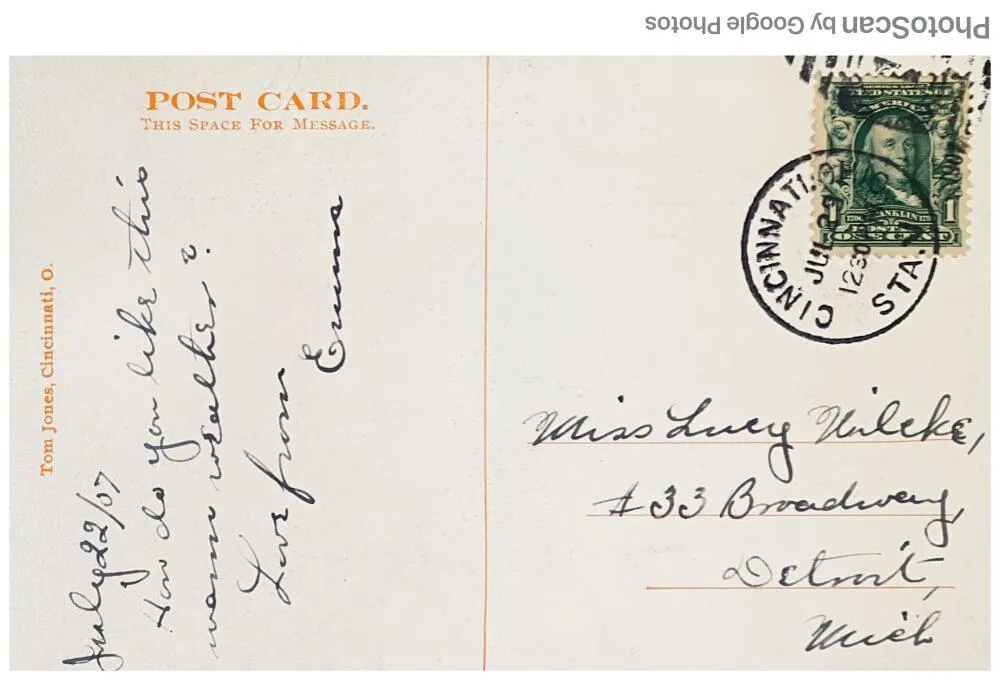 PhotoScan by Google Photos
POST CARD.
THIS SPACE FOR MESSAGE.
Tom Jones, Cincinnati, O.
July 22/07
How do you like this
warm weather?
Love from
Emma
UNITED STATES OF
AMERICA
FRANKLIN
1 1
ONE CENT
CINCINNATI, O.
JUL 22
1230
STA.
Miss Lucy Wilcke,
#33 Broadway,
Detroit,
Mich